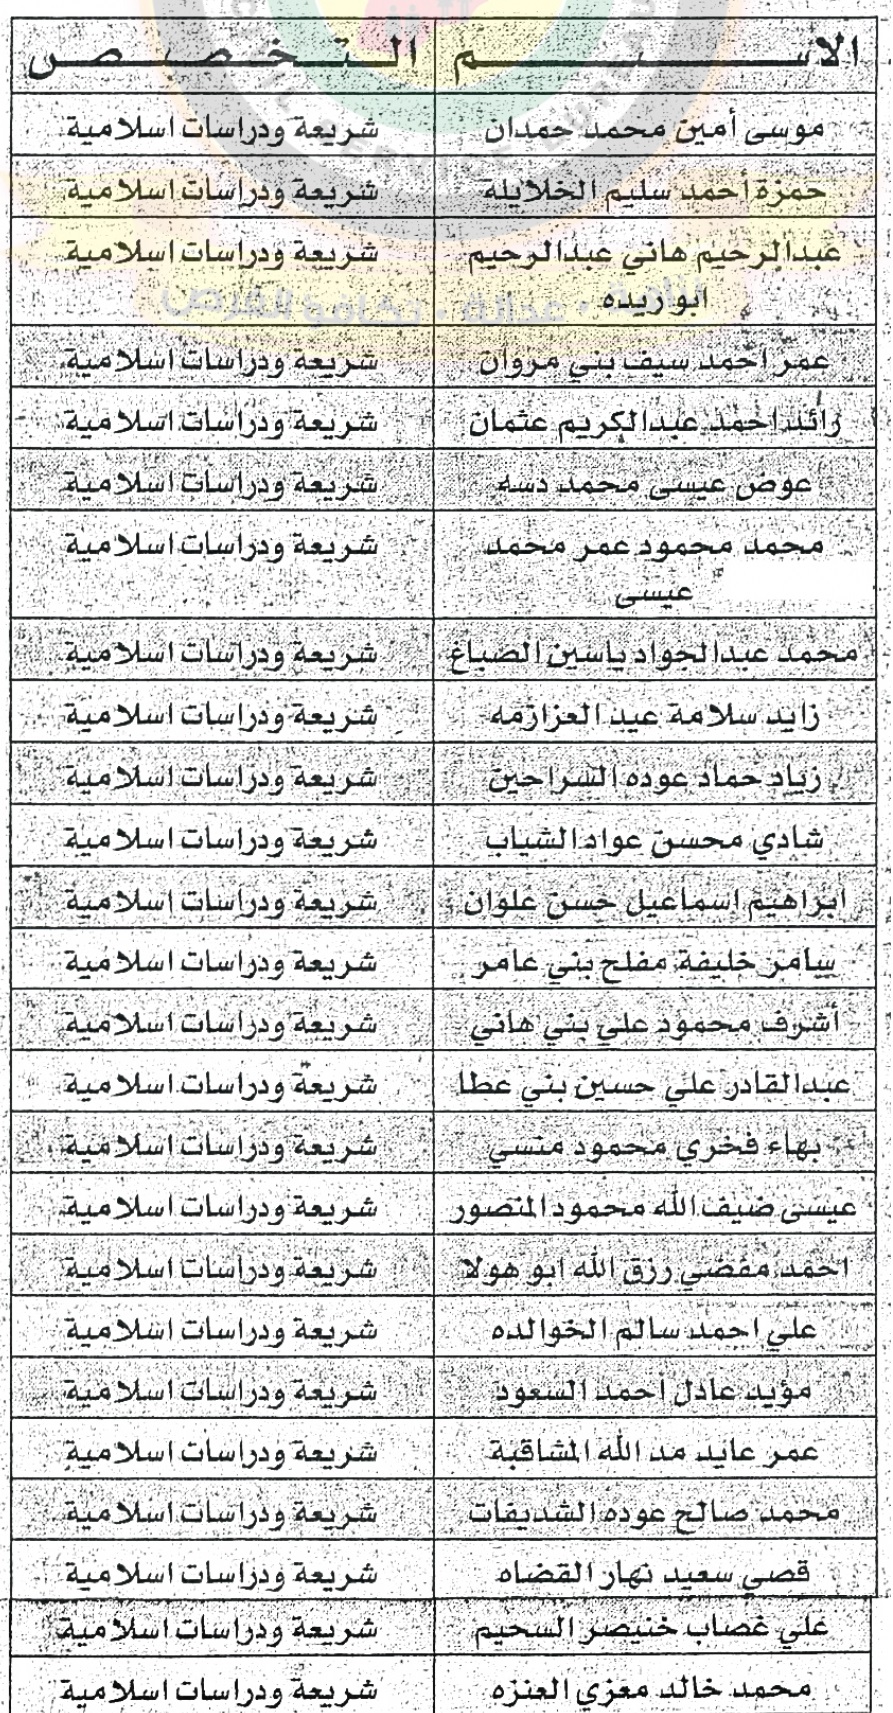 الاسم التخصص
موسى أمين محمد حمدان شريعة ودراسات اسلامية
حمزة أحمد سليم الخلايله شريعة ودراسات اسلامية
عبدالرحيم هاني عبدالرحيم شريعة ودراسات اسلامية
ابوريده
عمر احمد سيف بني مروان شريعة ودراسات اسلامية
رائد احمد عبدالكريم عثمان شريعة ودراسات اسلامية
عوض عيسى محمد دسه شريعة ودراسات اسلامية
محمد محمود عمر محمد شريعة ودراسات اسلامية
عيسى
محمد عبدالجواد ياسين الصباغ شريعة ودراسات اسلامية
زايد سلامة عيد العزازمه شريعة ودراسات اسلامية
زياد حماد عوده السراحين شريعة ودراسات اسلامية
شادي محسن عواد الشياب شريعة ودراسات اسلامية
ابراهيم اسماعيل حسن علوان شريعة ودراسات اسلامية
سامر خليفة مفلح بني عامر شريعة ودراسات اسلامية
أشرف محمود علي بني هاني شريعة ودراسات اسلامية
عبدالقادر علي حسين بني عطا شريعة ودراسات اسلامية
بهاء فخري محمود منسي شريعة ودراسات اسلامية
عيسى ضيف الله محمود المنصور شريعة ودراسات اسلامية
احمد مفضي رزق الله ابو هولا شريعة ودراسات اسلامية
علي احمد سالم الخوالده شريعة ودراسات اسلامية
مؤيد عادل احمد السعود شريعة ودراسات اسلامية
عمر عايد مد الله المشاقبة شريعة ودراسات اسلامية
محمد صالح عوده الشديفات شريعة ودراسات اسلامية
قصي سعيد نهار القضاه شريعة ودراسات اسلامية
علي غصاب خنيصر السحيم شريعة ودراسات اسلامية
محمد خالد معزي العنزه شريعة ودراسات اسلامية